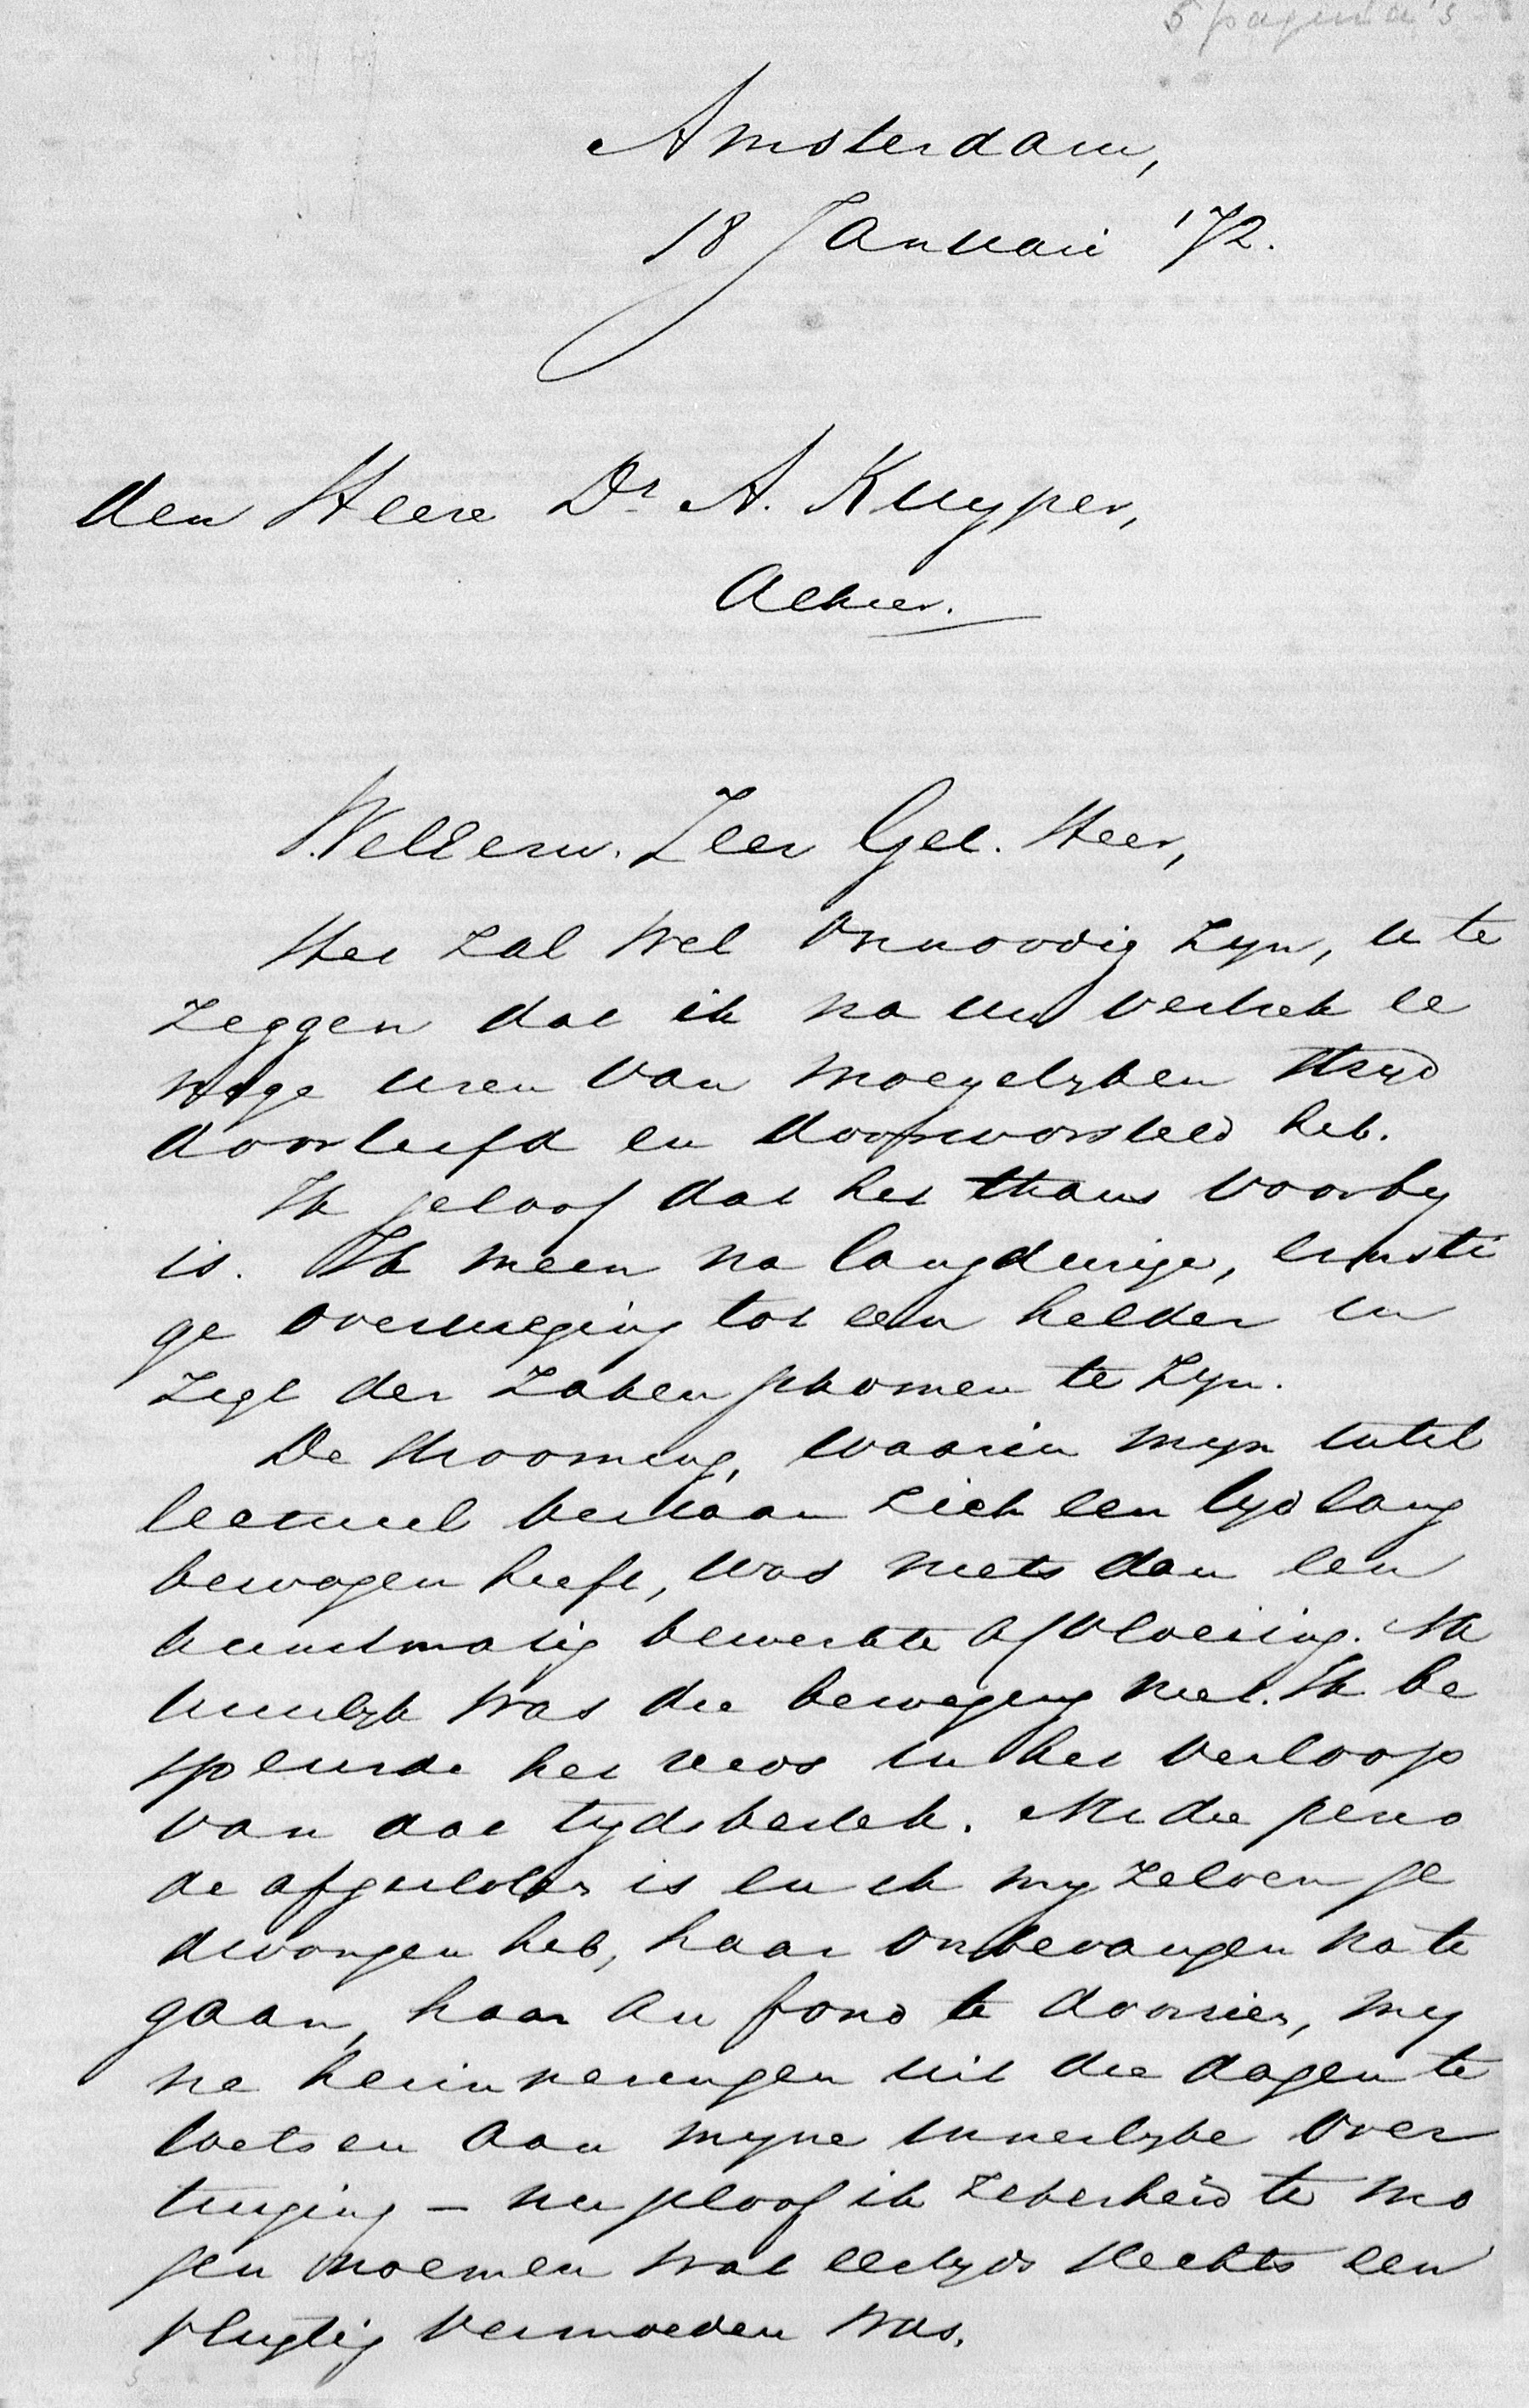 5 pagina's
Amsterdam,
18 Januari '72.
den Heere Dr A. Kuyper,
Alhier.
WelEerw. Zeer Gel. Heer,
Het zal wel onnoodig zyn, u te
zeggen dat ik na uw vertrek ee
nige uren van moeyelyken stryd
doorleefd en doorworsteld heb.
Ik geloof dat het thans voorby
is. Ik meen na langdurige, ernsti
ge overweging tot een helder in
zigt der zaken gekomen te zyn.
De strooming, waarin myn intel
lectueel bestaan zich een tyd lang
bewogen heeft, was niets dan een
kunstmatig bewerkte afvloeiing. Na
tuurlyk was die beweging niet. Ik be
speurde het reeds in het verloop
van dat tydsbestek. Nu die perio
de afgesloten is en ik my zelven ge
dwongen heb, haar onbevangen na te
gaan, haar au fond te doorzien, my
ne herinneringen uit die dagen te
toetsen aan myne innerlyke over
tuiging – nu geloof ik zekerheid te mo
gen noemen wat eertyds slechts een
vlugtig vermoeden was.